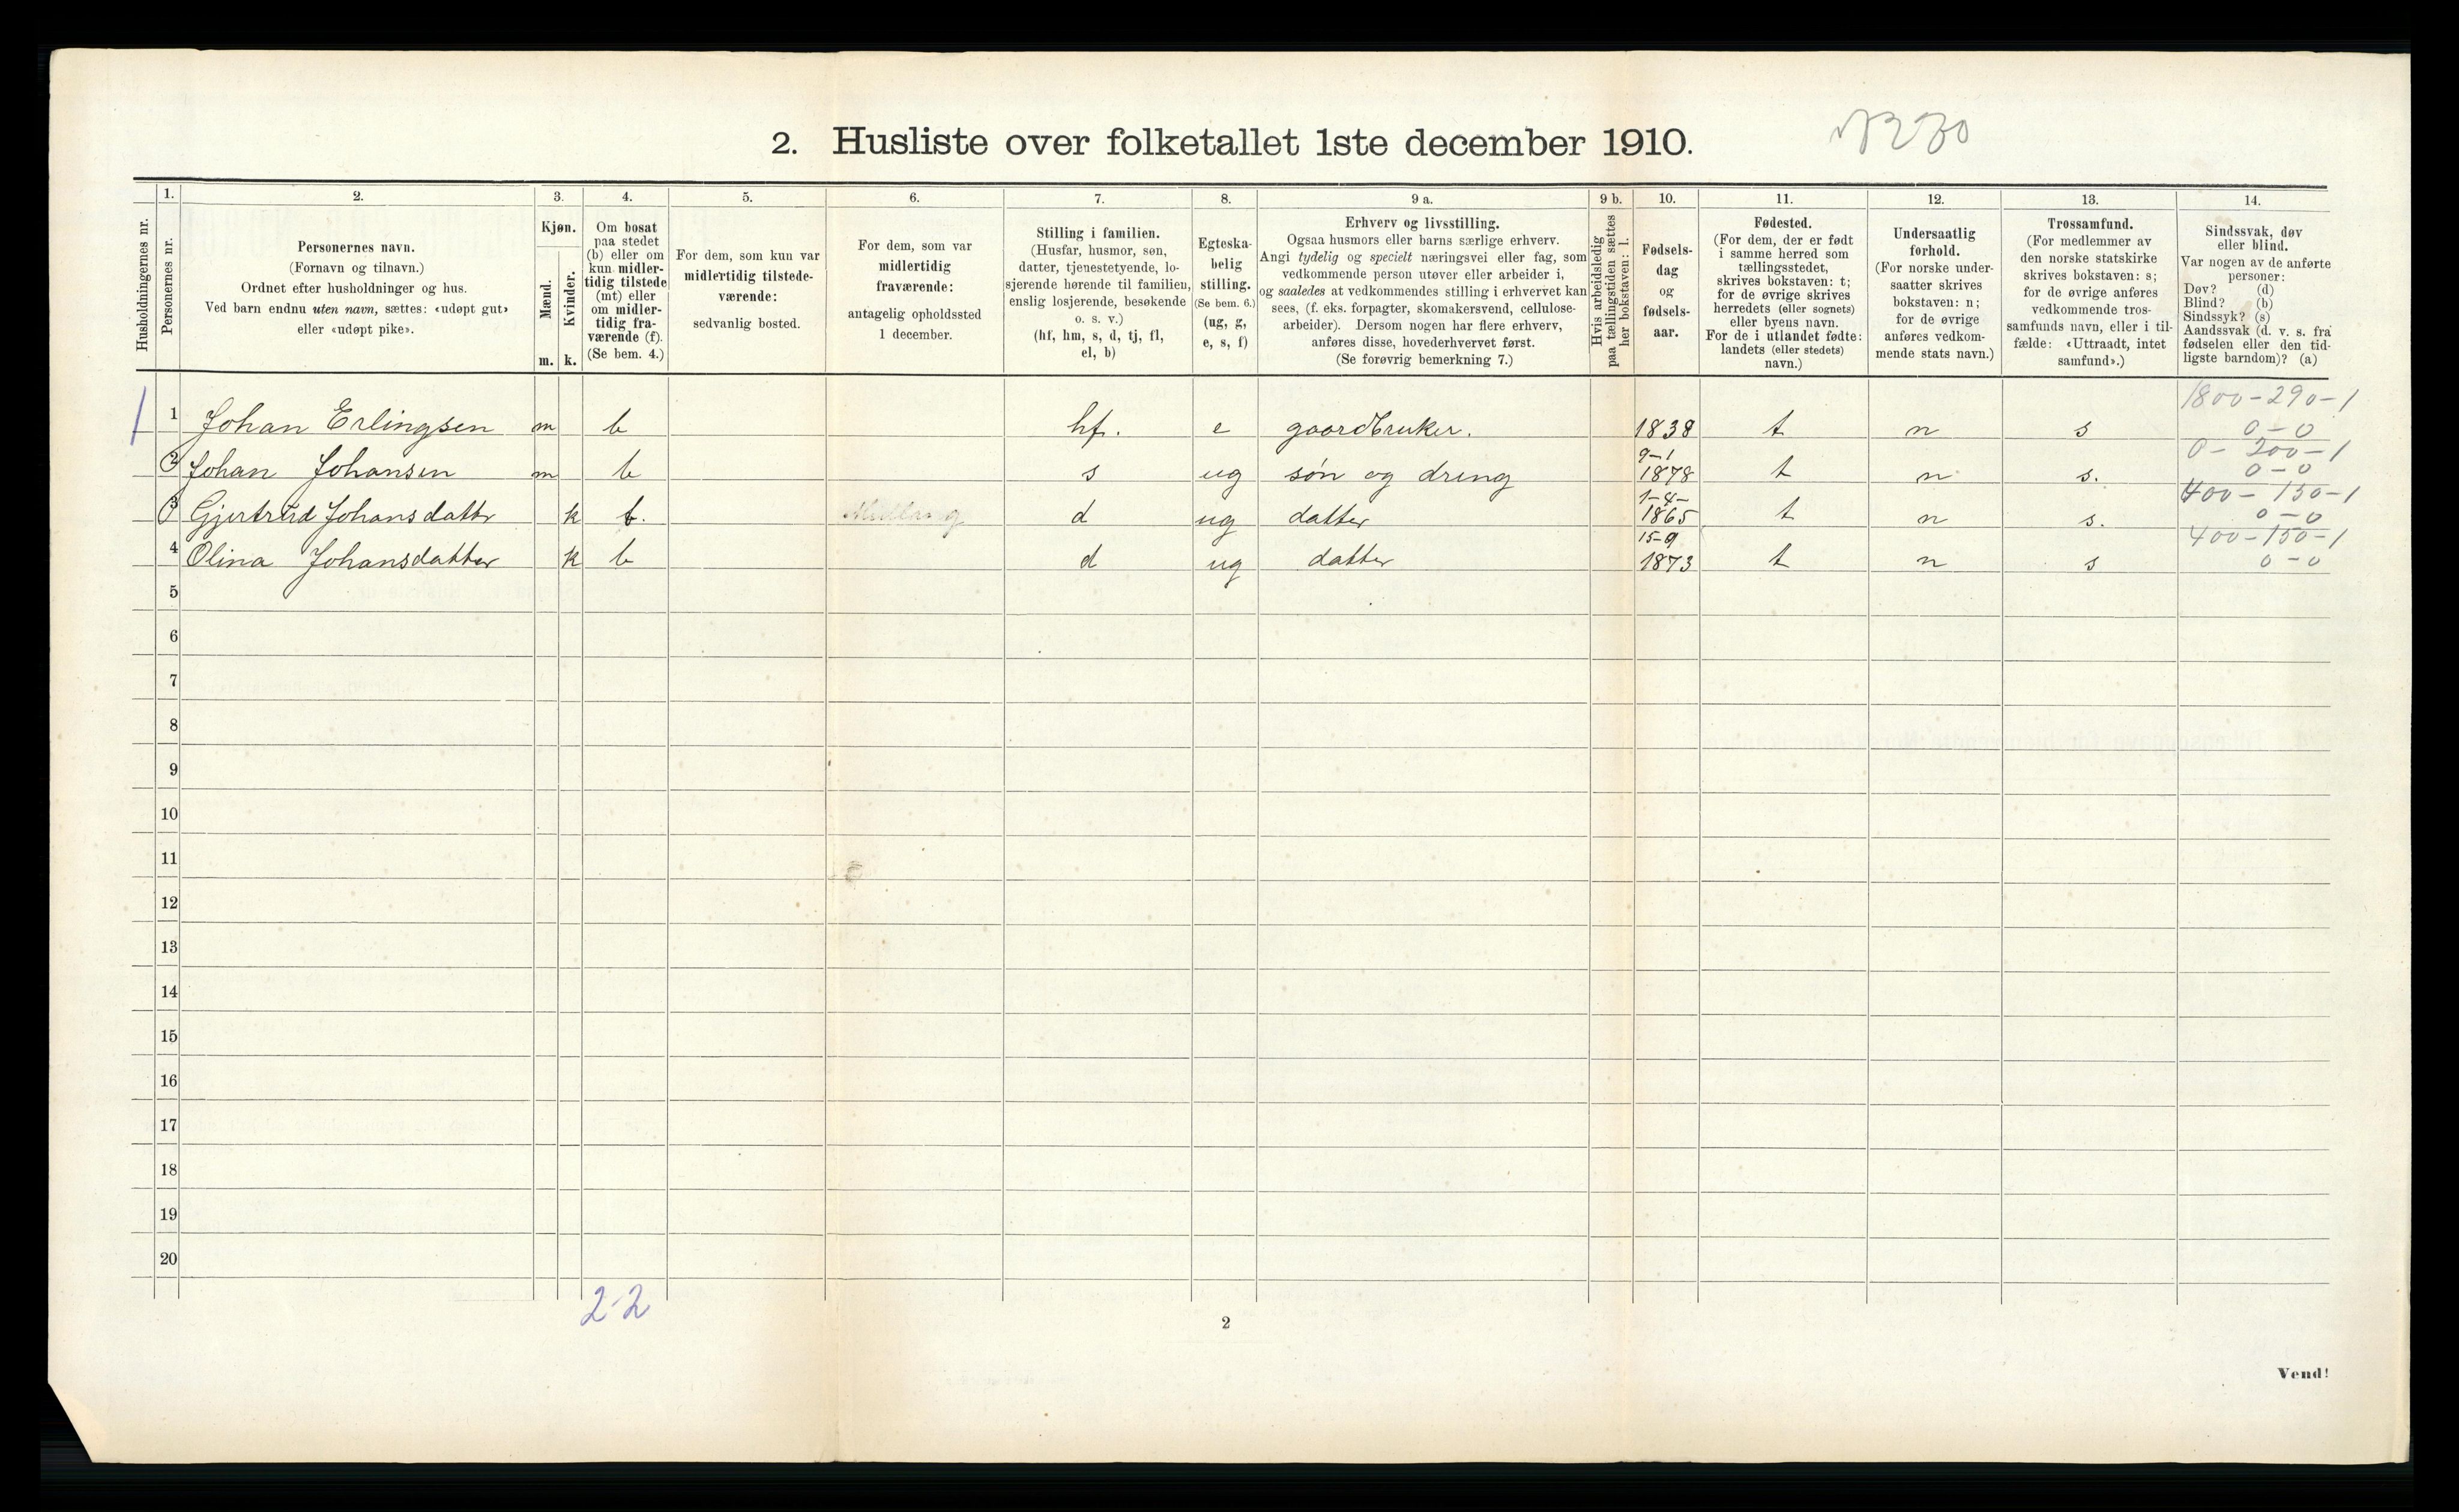 2. Husliste over folketallet 1ste december 1910.
1.
2.
3.
4.
5.
6.
7.
8.
9 a.
9 b.
10.
11.
12.
13.
14.
Husholdningernes nr.
Personernes nr.
Personernes navn.
(Fornavn og tilnavn.)
Ordnet efter husholdninger og hus.
Ved barn endnu uten navn, sættes: «udøpt gut»
eller «udøpt pike».
Kjøn.
Mænd.
Kvinder.
m. k.
Om bosat
paa stedet
(b) eller om
kun midler-
tidig tilstede
(mt) eller
om midler-
tidig fra-
værende (f).
(Se bem. 4.)
For dem, som kun var
midlertidig tilstede-
værende:
sedvanlig bosted.
For dem, som var
midlertidig
fraværende:
antagelig opholdssted
1 december.
Stilling i familien.
(Husfar, husmor, søn,
datter, tjenestetyende, lo-
sjerende hørende til familien,
enslig losjerende, besøkende
o. s. v.)
(hf, hm, s, d, tj, fl,
el, b)
Egteska-
belig
stilling.
(Se bem. 6.)
(ug, g,
e, s, f)
Erhverv og livsstilling.
Ogsaa husmors eller barns særlige erhverv.
Angi tydelig og specielt næringsvei eller fag, som
vedkommende person utøver eller arbeider i,
og saaledes at vedkommendes stilling i erhvervet kan
sees, (f. eks. forpagter, skomakersvend, cellulose-
arbeider). Dersom nogen har flere erhverv,
anføres disse, hovederhvervet først.
(Se forøvrig bemerkning 7.)
Hvis arbeidsledig
paa tællingstiden sættes
her bokstaven: l.
Fødsels-
dag
og
fødsels-
aar.
Fødested.
(For dem, der er født
i samme herred som
tællingsstedet,
skrives bokstaven: t;
for de øvrige skrives
herredets (eller sognets)
eller byens navn.
For de i utlandet fødte:
landets (eller stedets)
navn.)
Undersaatlig
forhold.
(For norske under-
saatter skrives
bokstaven: n;
for de øvrige
anføres vedkom-
mende stats navn.)
Trossamfund.
(For medlemmer av
den norske statskirke
skrives bokstaven: s;
for de øvrige anføres
vedkommende tros-
samfunds navn, eller i til-
fælde: «Uttraadt, intet
samfund».)
Sindssvak, døv
eller blind.
Var nogen av de anførte
personer:
Døv? (d)
Blind? (b)
Sindssyk? (s)
Aandssvak (d. v. s. fra
fødselen eller den tid-
ligste barndom)? (a)
1800-290-1
1 1 Johan Erlingsen m b hf. e gaardbruker. 1838 t n s 0-0
9-1 0-200-1
2 Johan Johansen m b s ug søn og dreng 1878 t n s. 0-0
1-4- 400-150-1
3 Gjertrud Johansdattr k b. d ug datter 1865 t n s. 0-0
15-9 400-150-1
4 Olina Johansdatter k b d ug datter 1873 t n s 0-0
5
6
7
8
9
10
11
12
13
14
15
16
17
18
19
20
2-2
2
Vend!